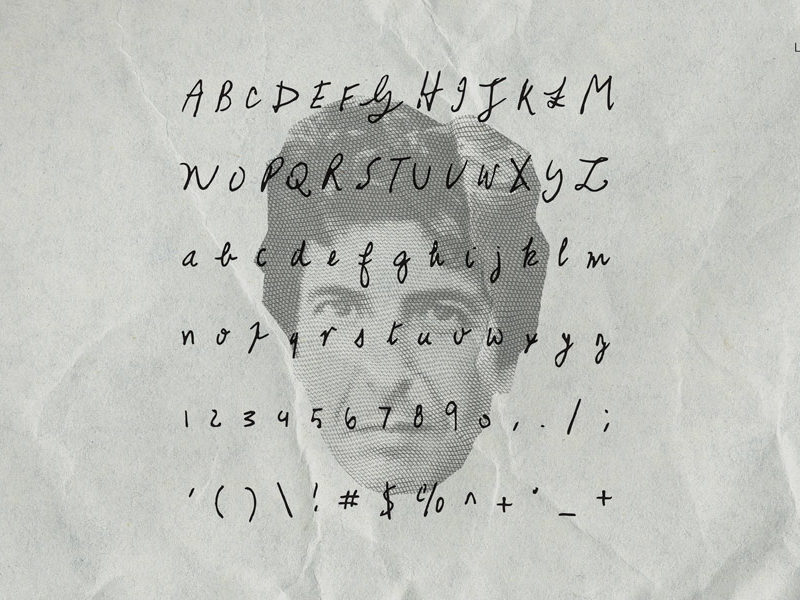 A B C D E F G H I J K L M
N O P Q R S T U V W X Y Z
a b c d e f g h i j k l m
n o p q r s t u v w x y z
1 2 3 4 5 6 7 8 9 0 , . / ;
' ( ) \ ! # $ % ^ + * _ +